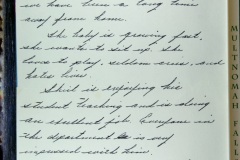 we have been a long time
away from home.
The baby is growing fast,
she wants to set up. She
loves to play, seldom cries, and
hates lives.
is enjoying his
student teaching and is doing
an excellent job. Everyone in
the department is very
impressed with him.
MULTNOMAH FALLS